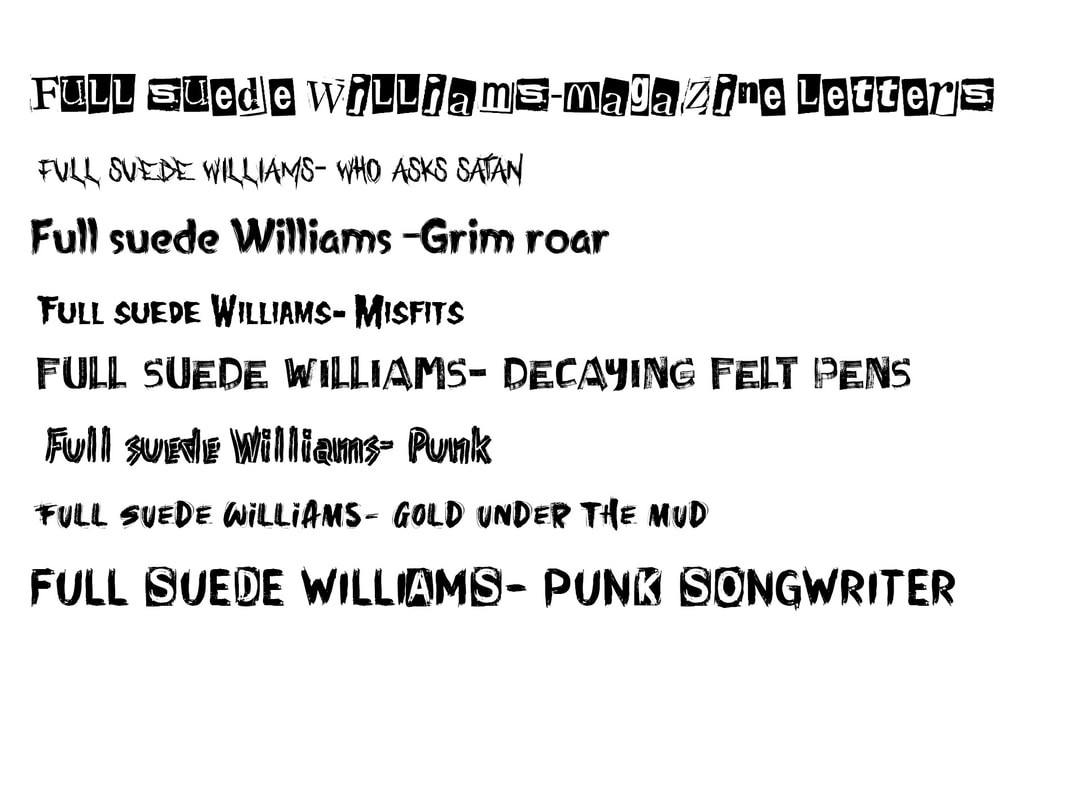 Full suede Williams-magazine letters
FULL SUEDE WILLIAMS- WHO ASKS SATAN
Full suede Williams -Grim roar
Full suede Williams- Misfits
FULL SUEDE WILLIAMS- DECAYING FELT PENS
Full suede Williams- Punk
FULL SUEDE WiLLiAMS- GOLD UNDER THE MUD
FULL SUEDE WILLIAMS- PUNK SONGWRITER